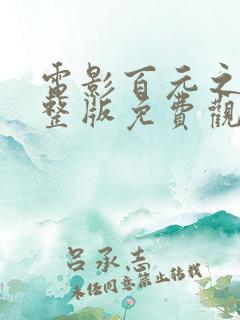 電影百元之
整版免費觀
呂承志
未经同意禁止转载